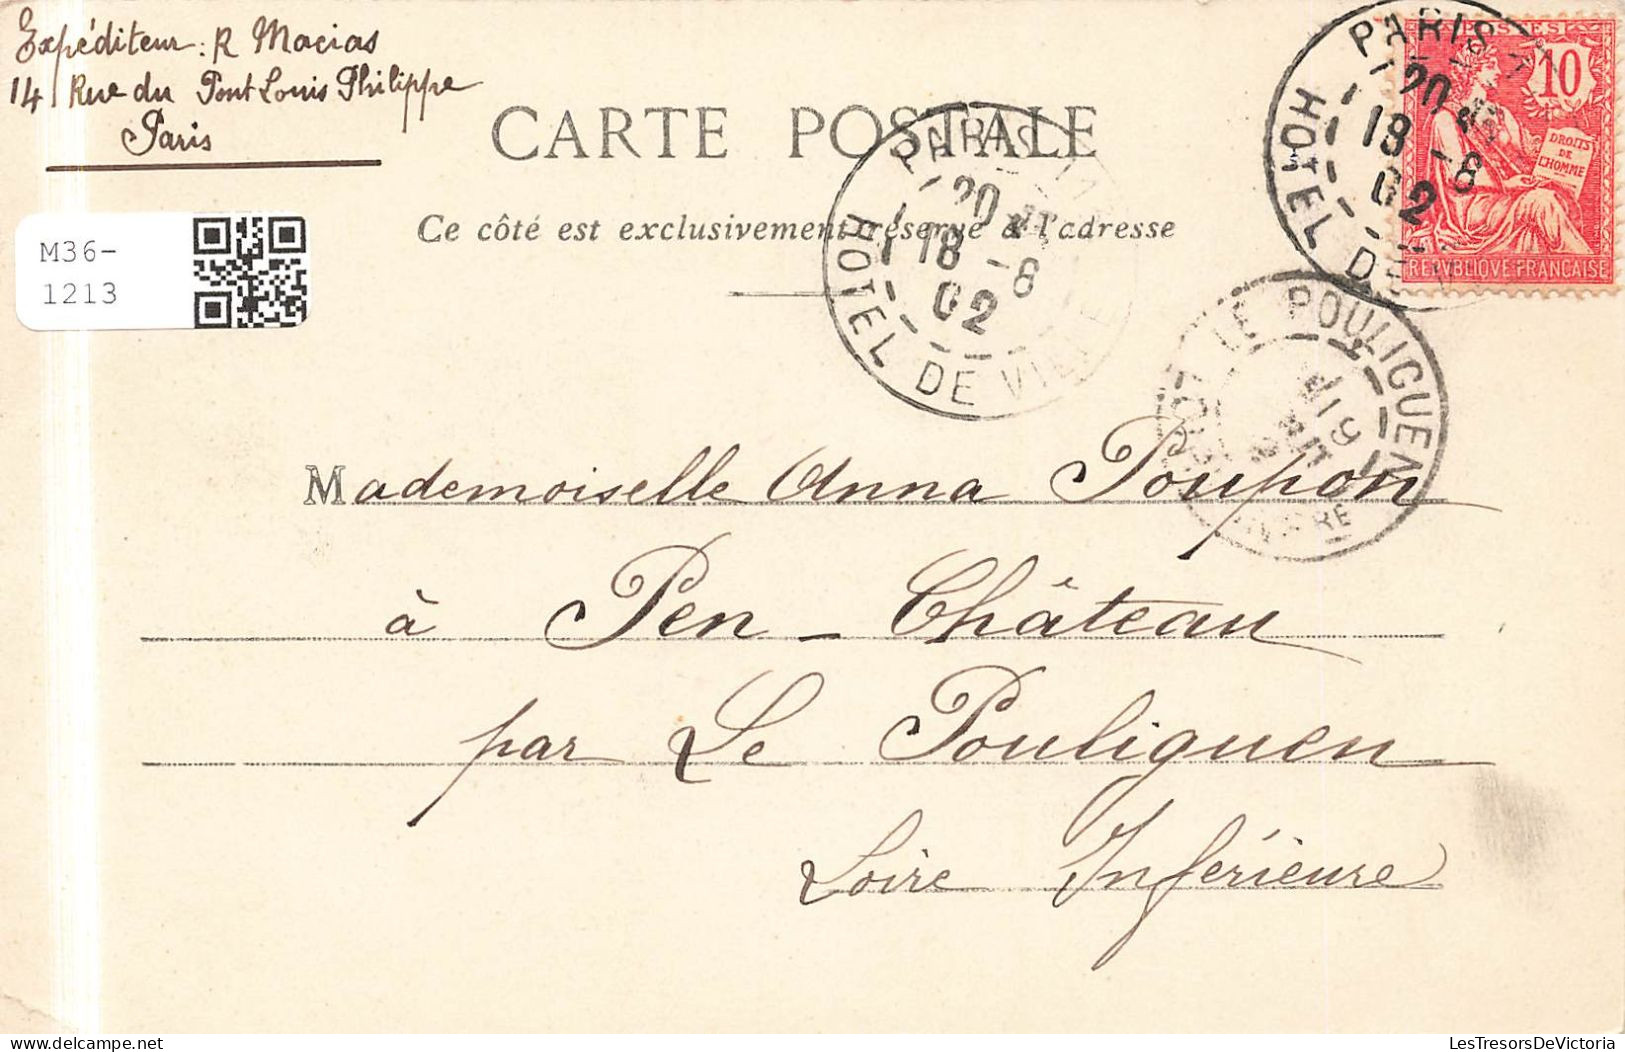 Expéditeur: R Macias
14 Rue du Pont Louis Philippe
Paris
CARTE POSTALE
Ce côté est exclusivement réservé à l'adresse
M36-
1213
PARIS
20
18 - 8
02
HOTEL DE VILLE
PARIS
20
18 - 8
02
HOTEL DE
POSTES
10
DROITS
DE
L'HOMME
REPVBLIQVE FRANCAISE
LE POULIGUEN
19
Mademoiselle Anna Poupon
à Pen-Château
par Le Pouliguen
Loire Inférieure
delcampe.net
LesTresorsDeVictoria